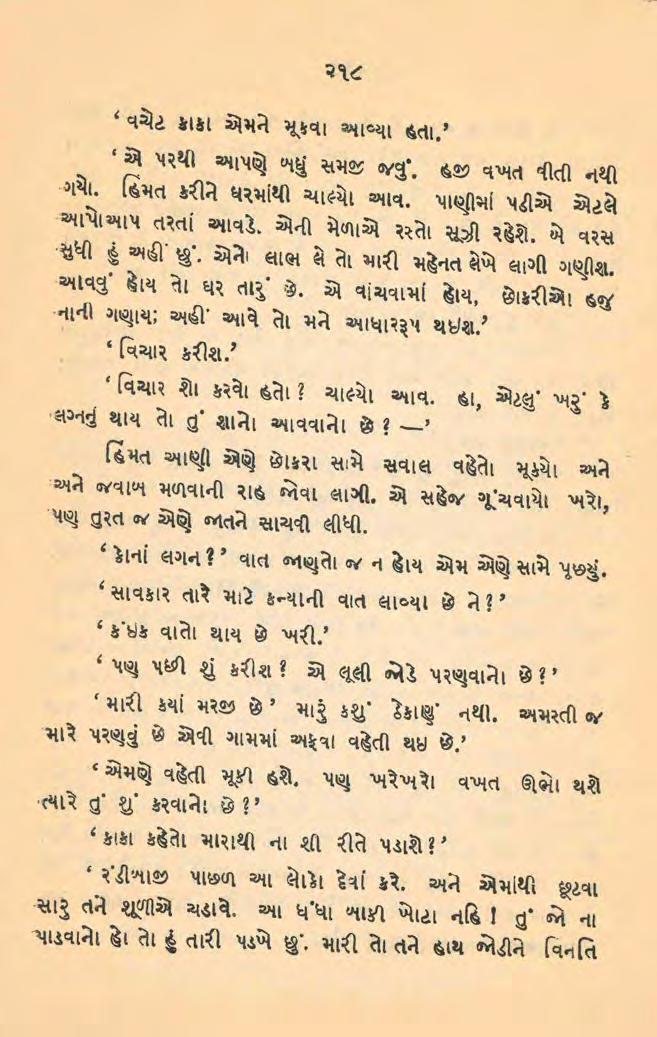 ૨૧૮
‘ વચેટ કાકા એમને મૂકવા આવ્યા હતા.’
‘ એ પરથી આપણે બધું સમજી જવું. હજી વખત વીતી નથી
ગયો. હિંમત કરીને ઘરમાંથી ચાલ્યો આવ. પાણીમાં પડીએ એટલે
આપોઆપ તરતાં આવડે. એની મેળાએ રસ્તો સૂઝી રહેશે. બે વરસ
સુધી હું અહીં છું. એનો લાભ લે તો મારી મહેનત લેખે લાગી ગણીશ.
આવવું હોય તો ઘર તારું છે. એ વાંચવામાં હોય, છોકરીઓ હજુ
નાની ગણાય; અહીં આવે તો મને આધારરૂપ થઇશ.’
‘ વિચાર કરીશ.’
‘ વિચાર શો કરવો હતો ? ચાલ્યો આવ. હા, એટલું ખરું કે
લગ્નનું થાય તો તું શાનો આવવાનો છે ? —’
હિંમત આણી એણે છોકરા સામે સવાલ વહેતો મૂક્યો અને
અને જવાબ મળવાની રાહ જોવા લાગી. એ સહેજ ગૂંચવાયો ખરો,
પણ તુરત જ એણે જાતને સાચવી લીધી.
‘ કોનાં લગન ? ’ વાત જાણતો જ ન હોય એમ એણે સામે પૂછ્યું.
‘ સાવકાર તારે માટે કન્યાની વાત લાવ્યા છે ને ? ’
‘ કંઇક વાતો થાય છે ખરી.’
‘ પણ પછી શું કરીશ ? એ લૂલી જોડે પરણવાનો છે ? ’
‘ મારી કયાં મરજી છે ’ મારું કશું ઠેકાણું નથી. અમરતી જ
મારે પરણવું છે એવી ગામમાં અફવા વહેતી થઇ છે.’
‘ એમણે વહેતી મૂકી હશે. પણ ખરેખરો વખત ઊભો થશે
ત્યારે તું શું કરવાનો છે ? ’
‘ કાકા કહેતો મારાથી ના શી રીતે પડાશે ? ’
‘ રંડીબાજી પાછળ આ લોકો દેવાં કરે. અને એમાંથી છૂટવા
સારુ તને શૂળીએ ચડાવે. આ ધંધા બાકી ખોટા નહિ ! તું જો ના
પાડવાનો હો તો હું તારી પડખે છું. મારી તો તને હાથ જોડીને વિનતિ